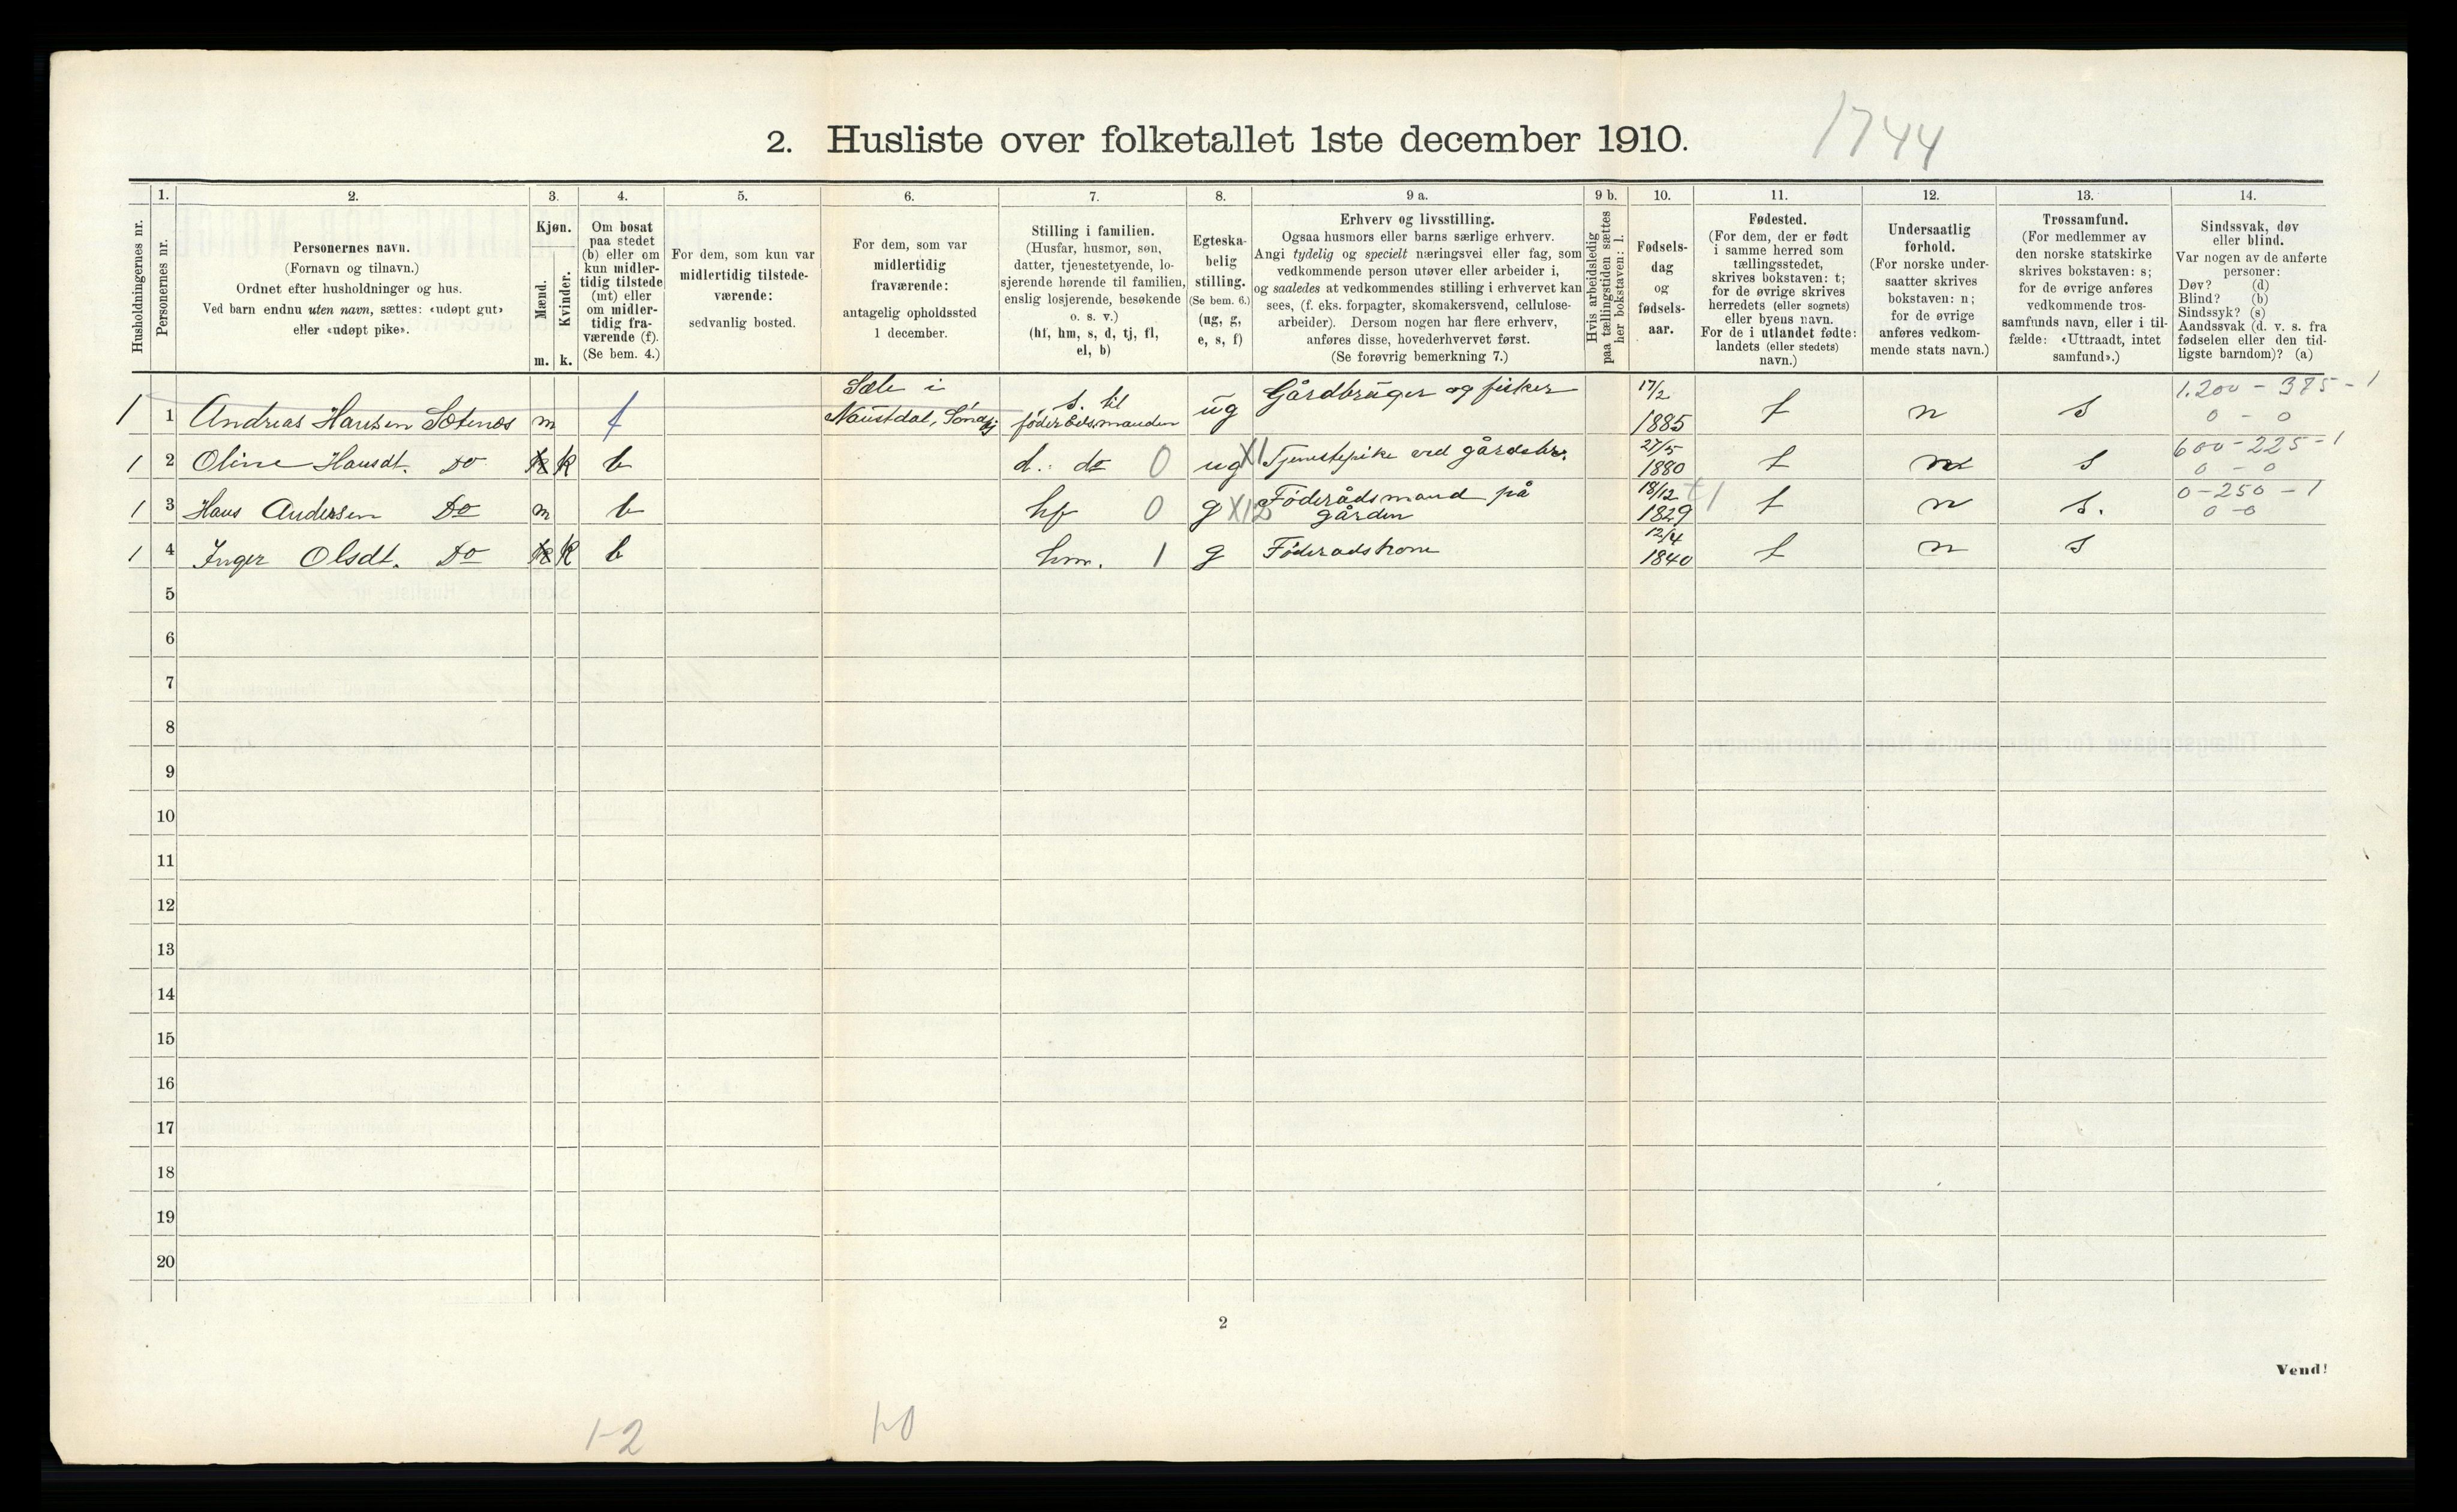 2. Husliste over folketallet 1ste december 1910.
1744
Husholdningernes nr.
1.
Personernes nr.
2.
Personernes navn.
(Fornavn og tilnavn.)
Ordnet efter husholdninger og hus.
Ved barn endnu uten navn, sættes: «udøpt gut»
eller «udøpt pike».
3.
Kjøn.
Mænd.
Kvinder.
m. k.
4.
Om bosat
paa stedet
(b) eller om
kun midler-
tidig tilstede
(mt) eller
om midler-
tidig fra-
værende (f).
(Se bem. 4.)
5.
For dem, som kun var
midlertidig tilstede-
værende:
sedvanlig bosted.
6.
For dem, som var
midlertidig
fraværende:
antagelig opholdssted
1 december.
7.
Stilling i familien.
(Husfar, husmor, søn,
datter, tjenestetyende, lo-
sjerende hørende til familien,
enslig losjerende, besøkende
o. s. v.)
(hf, hm, s, d, tj, fl,
el, b)
8.
Egteska-
belig
stilling.
(Se bem. 6.)
(ug, g,
e, s, f)
9 a.
Erhverv og livsstilling.
Ogsaa husmors eller barns særlige erhverv.
Angi tydelig og specielt næringsvei eller fag, som
vedkommende person utøver eller arbeider i,
og saaledes at vedkommendes stilling i erhvervet kan
sees, (f. eks. forpagter, skomakersvend, cellulose-
arbeider). Dersom nogen har flere erhverv,
anføres disse, hovederhvervet først.
(Se forøvrig bemerkning 7.)
9 b.
Hvis arbeidsledig
paa tællingstiden sættes
her bokstaven: l.
10.
Fødsels-
dag
og
fødsels-
aar.
11.
Fødested.
(For dem, der er født
i samme herred som
tællingsstedet,
skrives bokstaven: t;
for de øvrige skrives
herredets (eller sognets)
eller byens navn.
For de i utlandet fødte:
landets (eller stedets)
navn.)
12.
Undersaatlig
forhold.
(For norske under-
saatter skrives
bokstaven: n;
for de øvrige
anføres vedkom-
mende stats navn.)
13.
Trossamfund.
(For medlemmer av
den norske statskirke
skrives bokstaven: s;
for de øvrige anføres
vedkommende tros-
samfunds navn, eller i til-
fælde: «Uttraadt, intet
samfund».)
14.
Sindssvak, døv
eller blind.
Var nogen av de anførte
personer:
Døv? (d)
Blind? (b)
Sindssyk? (s)
Aandssvak (d. v. s. fra
fødselen eller den tid-
ligste barndom)? (a)
Sæle i s. til Gårdbrüger og fisker 17/2 1.200 - 375 - 1
1 1 Andreas Hansen Sætenes m f Naustdal, føderådsmanden ug 1885 t n s 0 - 0
1 2 Oline Hansdt. Do k b d. do 0 ug X1 Tjenestepike ved gårdsbr. 27/5 1880 t n s 600 - 225 - 1
0 - 0
1 3 Hans Andersen Do m b hf 0 g X12 Føderådsmand på gården 18/12 1829 t1 t n s. 0 - 250 - 1
0 - 0
1 4 Inger Olsdt. Do k b hm. 1 g Føderadskone 12/4 1840 t n s
5
6
7
8
9
10
11
12
13
14
15
16
17
18
19
20
2
Vend!
1-2
1-0